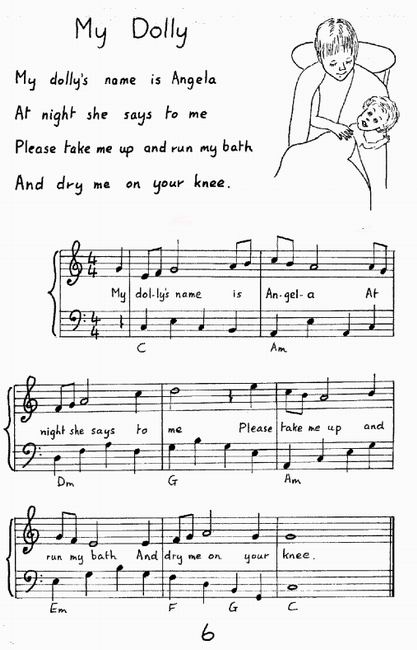 My Dolly
My dolly's name is Angela
At night she says to me
Please take me up and run my bath
And dry me on your knee.
4 4
My dol-ly's name is An-gel-a At
4 4
C Am
night she says to me Please take me up and
Dm G Am
run my bath And dry me on your knee.
Em F G C
6